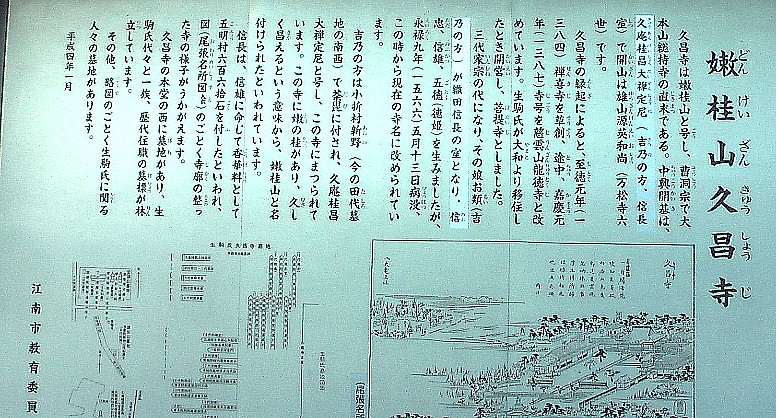 嫩桂山久昌寺
どんけいざんきゅうしょうじ
久昌寺は嫩桂山と号し、曹洞宗で大
本山総持寺の直末である。中興開基は、
久庵桂昌大禅定尼(吉乃の方、信長
室)で開山は雄山源英和尚(万松寺六
世)です。
久昌寺の縁起によると、至徳元年(一
三八四)禅喜寺を草創、途中、嘉慶元
年(一三八七)寺号を慈雲山龍徳寺と改
めています。生駒氏が大和より移住し
たとき開営し、菩提寺としました。
三代家宗の代になり、その娘お類(吉
乃の方)が織田信長の室となり、信
忠、信雄、五徳(徳姫)を生みましたが、
永禄九年(一五六六)五月十三日病没、
この時から現在の寺名に改められてい
ます。
吉乃の方は小折村新野(今の田代墓
地の南西)で荼毘に付され、久庵桂昌
大禅定尼と号し、この寺にまつられて
います。この寺に嫩の桂があり、久し
く昌えるという意味から、嫩桂山と名
付けられたといわれています。
信長は、信雄に命じて香華料として
五明村六百六拾石を付したといわれ、
図(尾張名所図会)のごとく寺廊の整っ
た寺の様子がうかがえます。
久昌寺の本堂の西に墓地があり、生
駒氏代々と一族、歴代住職の墓標が林
立しています。
その他、略図のごとく生駒氏に関る
人々の墓地があります。
平成四年一月
江南市教育委員
久昌寺
生駒氏久昌寺墓地
(尾張名